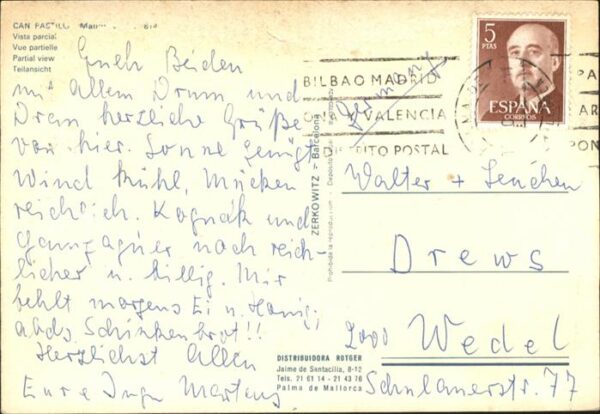 CAN PASTILLA
Vista parcial
Vue partielle
Partial view
Teilansicht
Euch Beiden
mit allem Drum und
Dran herzliche Grüße
von hier. Sonne genügt
Wind kühl, Mücken
reichlich. Kognak und
noch reich-
licher u. billig. Mir
fehlt morgens Ei u. Honig,
abds Schinkenbrot!!
Herzlichst allen
Eure Inge Martens
ZERKOWITZ - Barcelona
Prohibida la reproducción
5
PTAS
ESPAÑA
CORREOS
BILBAO MADRID
Y VALENCIA
DISTRITO POSTAL
Germany
Walter + Lenchen
Drews
2000 Wedel
Schulauerstr. 77
DISTRIBUIDORA ROTGER
Jaime de Santacilia, 8-12
Tels. 21 61 14 - 21 43 76
Palma de Mallorca